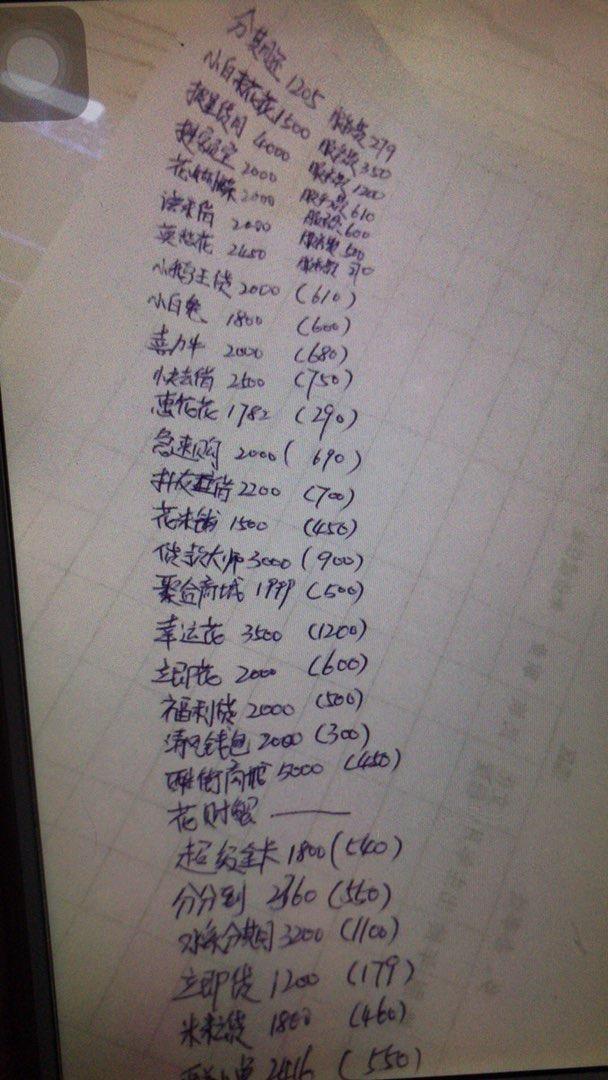 分期 1205 服务费279
小白 花花1500 服务费350
4000 服务费1200
2000 服务费610
花蝴蝶2000 服务费600
借 2000 服务费500
莫愁花 2450 服务费270
小鹅王贷2000 (610)
小白兔 1800 (600)
喜力牛 2000 (680)
小夫去借2500 (750)
惠花花 1782 (290)
急速购 2000 (690)
借2200 (700)
花米铺 1500 (450)
贷款大师3000 (900)
聚合商城 1999 (500)
幸运花 3500 (1200)
立即花 2000 (600)
福利贷2000 (500)
清风钱包2000 (300)
街商城 5000 (450)
花财蟹 ——
超级金卡1800 (540)
分分到 2360 (550)
分期3200 (1100)
立即贷1200 (179)
米来贷 1800 (460)
2416 (550)